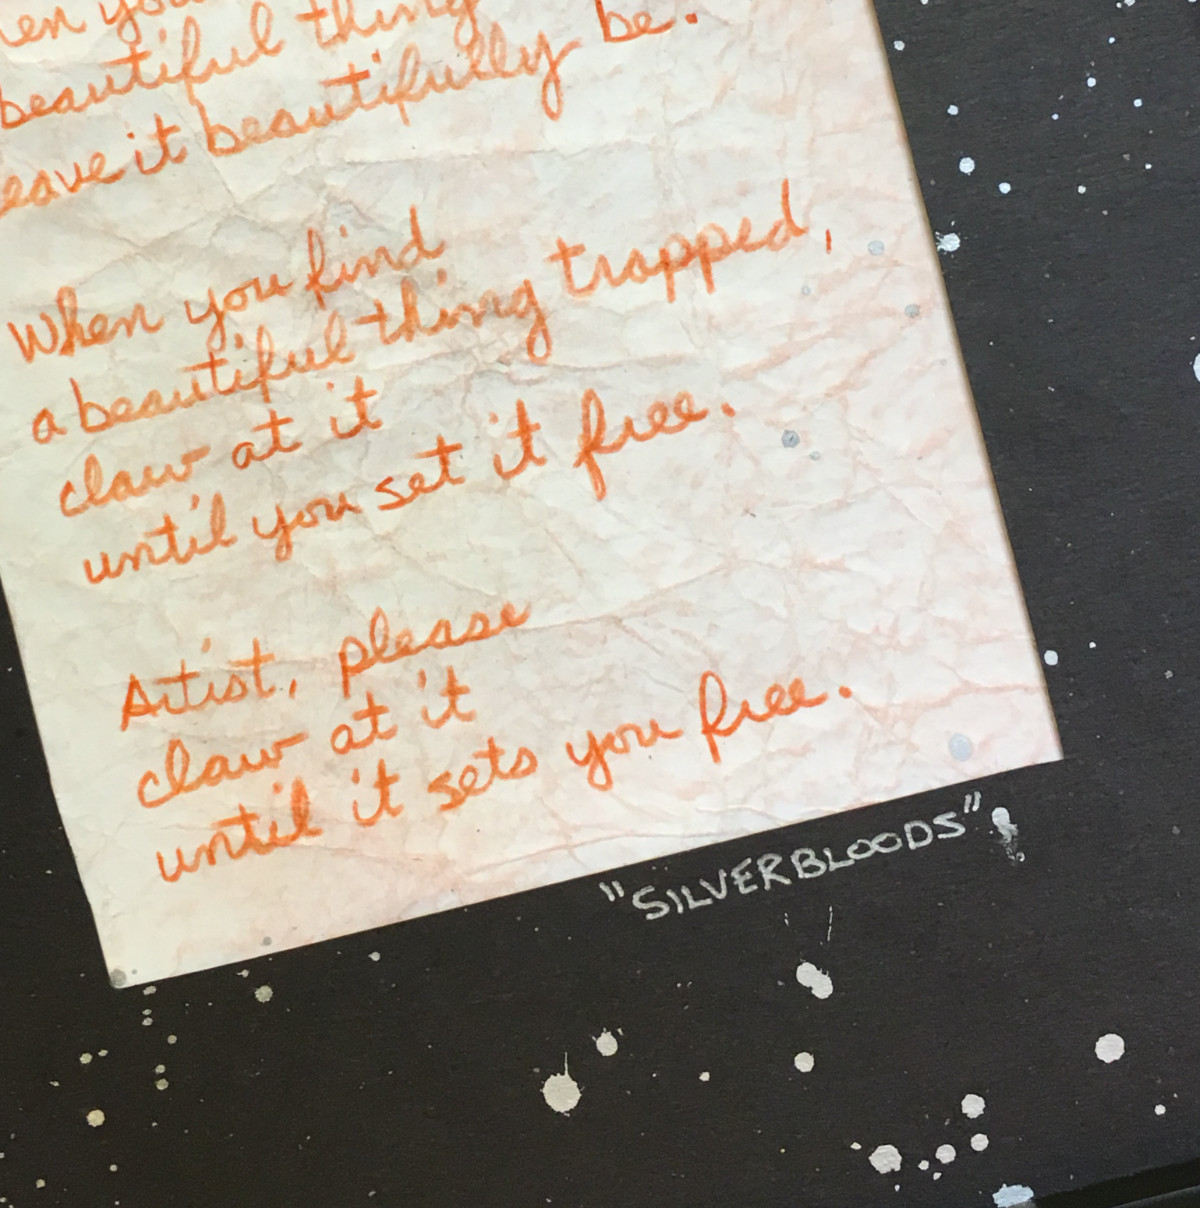 you
beautiful thing
leave it beautifully be.
When you find
a beautiful thing trapped,
claw at it
until you set it free.
Artist, please
claw at it
until it sets you free.
"SILVERBLOODS"